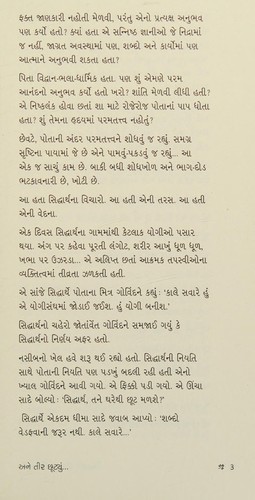 ફક્ત જાણકારી નહોતી મેળવી, પરંતુ એનો પ્રત્યક્ષ અનુભવ
પણ કર્યો હતો? ક્યાં હતા એ સન્નિષ્ઠ જ્ઞાનીઓ જે નિદ્રામાં
જ નહીં, જાગ્રત અવસ્થામાં પણ, શબ્દો અને કાર્યોમાં પણ
આત્માને અનુભવી શકતા હતા?
પિતા વિદ્વાન-ભલા-ધાર્મિક હતા. પણ શું એમણે પરમ
આનંદનો અનુભવ કર્યો હતો ખરો? શાંતિ મેળવી લીધી હતી?
એ નિષ્કલંક હોવા છતાં શા માટે રોજેરોજ પોતાનાં પાપ ધોતા
હતા? શું તેમના હૃદયમાં પરમતત્ત્વ નહોતું?
છેવટે, પોતાની અંદર પરમતત્ત્વને શોધવું જ રહ્યું. સમગ્ર
સૃષ્ટિના પાયામાં જે છે એને પામવું-પકડવું જ રહ્યું... આ
એક જ સાચું કામ છે. બાકી બધી શોધખોળ અને ભાગ-દોડ
ભટકાવનારી છે, ખોટી છે.
આ હતા સિદ્ધાર્થના વિચારો. આ હતી એની તરસ. આ હતી
એની વેદના.
એક દિવસ સિદ્ધાર્થના ગામમાંથી કેટલાક યોગીઓ પસાર
થયા. અંગ પર કહેવા પૂરતી લંગોટ, શરીર આખું ધૂળ ધૂળ,
ખભા પર ઉઝરડા... એ અલિપ્ત છતાં આક્રમક તપસ્વીઓના
વ્યક્તિત્વમાં તીવ્રતા ઝળકતી હતી.
એ સાંજે સિદ્ધાર્થે પોતાના મિત્ર ગોવિંદને કહ્યું : ‘કાલે સવારે હું
એ યોગીસંઘમાં જોડાઈ જઈશ. હું યોગી બનીશ.’
સિદ્ધાર્થનો ચહેરો જોતાંવેંત ગોવિંદને સમજાઈ ગયું કે
સિદ્ધાર્થનો નિર્ણય અફર હતો.
નસીબનો ખેલ હવે શરૂ થઈ રહ્યો હતો. સિદ્ધાર્થની નિયતિ
સાથે પોતાની નિયતિ પણ પડખું બદલી રહી હતી એનો
ખ્યાલ ગોવિંદને આવી ગયો. એ ફિક્કો પડી ગયો. એ ઊંચા
સાદે બોલ્યો : ‘સિદ્ધાર્થ, તને ઘરેથી છૂટ મળશે?’
સિદ્ધાર્થે એકદમ ધીમા સાદે જવાબ આપ્યો : ‘શબ્દો
વેડફવાની જરૂર નથી. કાલે સવારે...’
અને તીર છૂટ્યું... 3